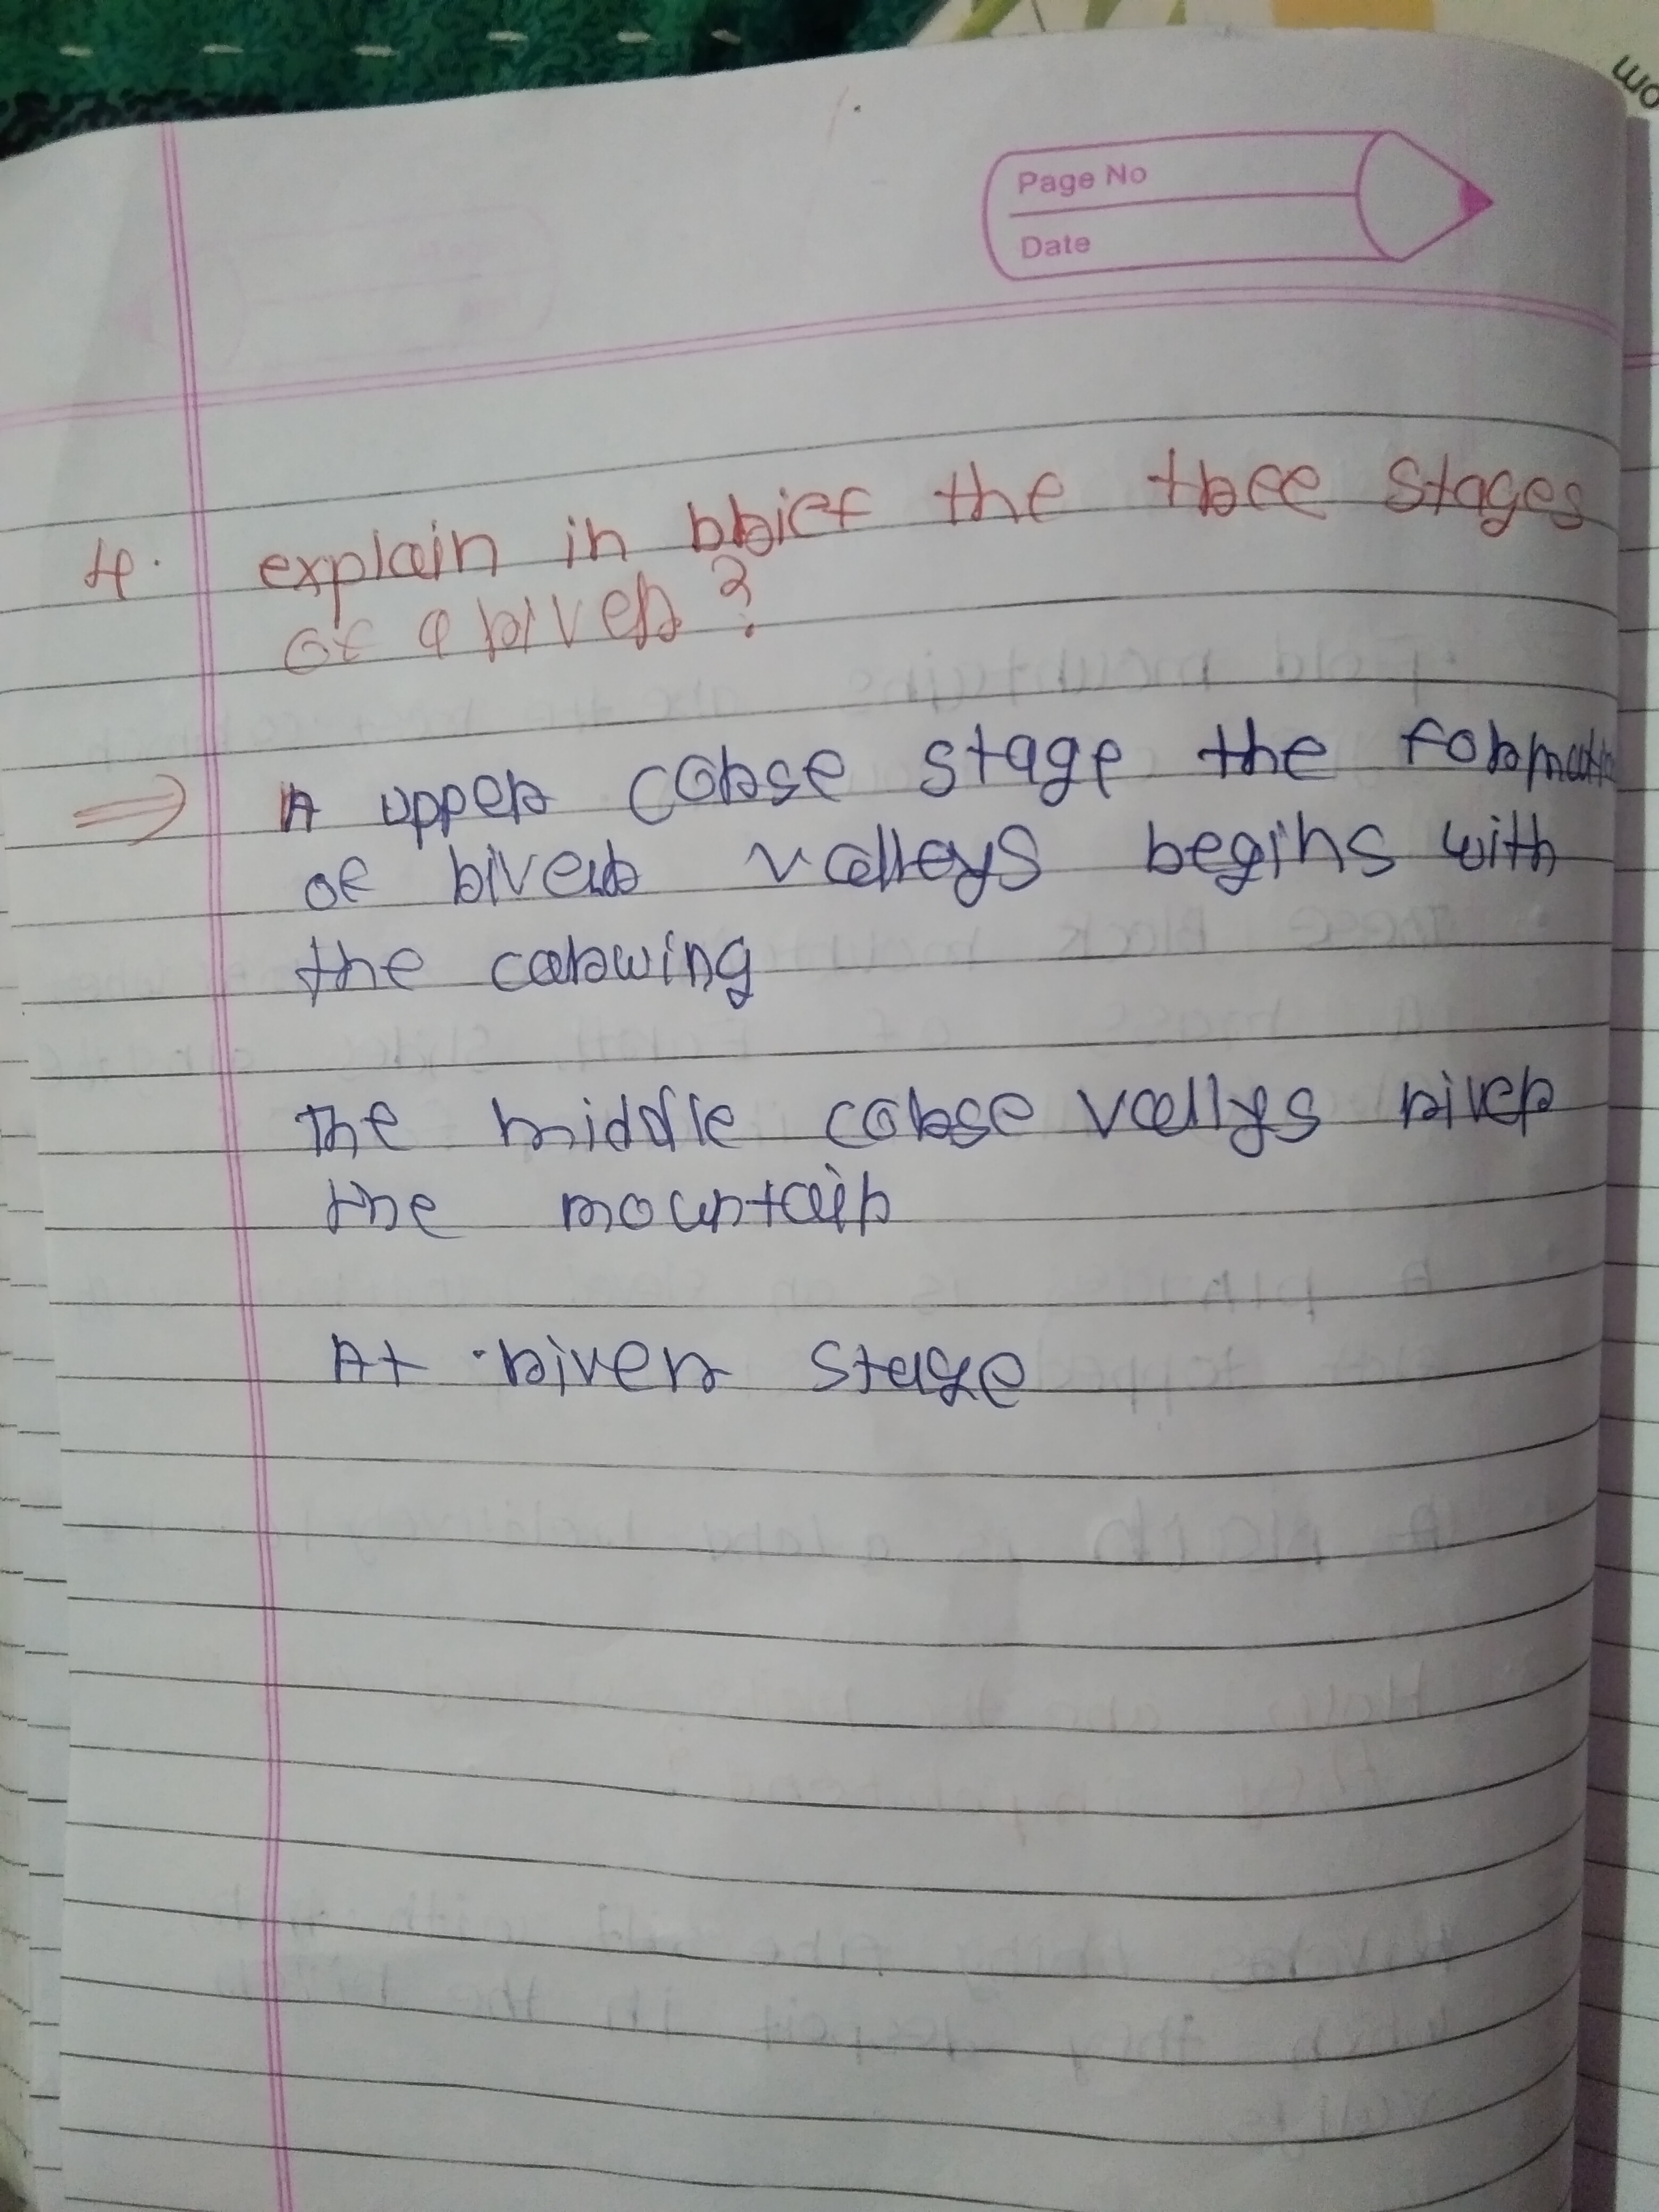 Page No
Date
4. explain in brief the three stages
of a river ?
⇒ A upper corse stage the formati
of river valleys begins with
the carwing
The middle corse vallys river
the mountain
At river stage